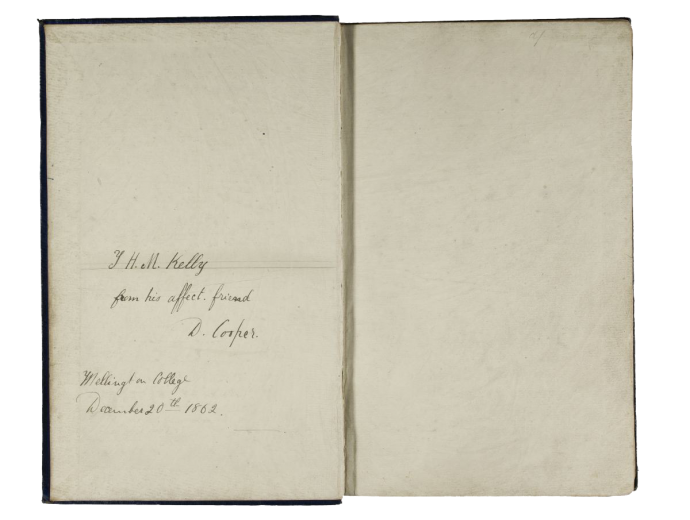 H. M. Kelly
from his affect. friend
D. Cooper.
Wellington College
December 20th 1862.